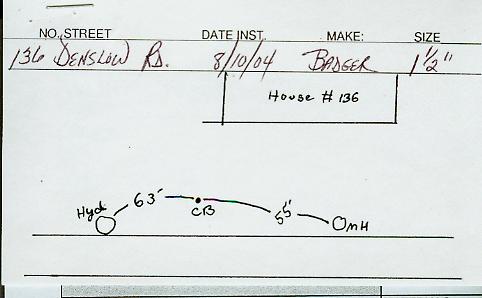 NO. STREET DATE INST. MAKE: SIZE
136 DENSLOW RD. 8/10/04 BADGER 1 1/2"
House # 136
Hyd 63' CB 55' OMH